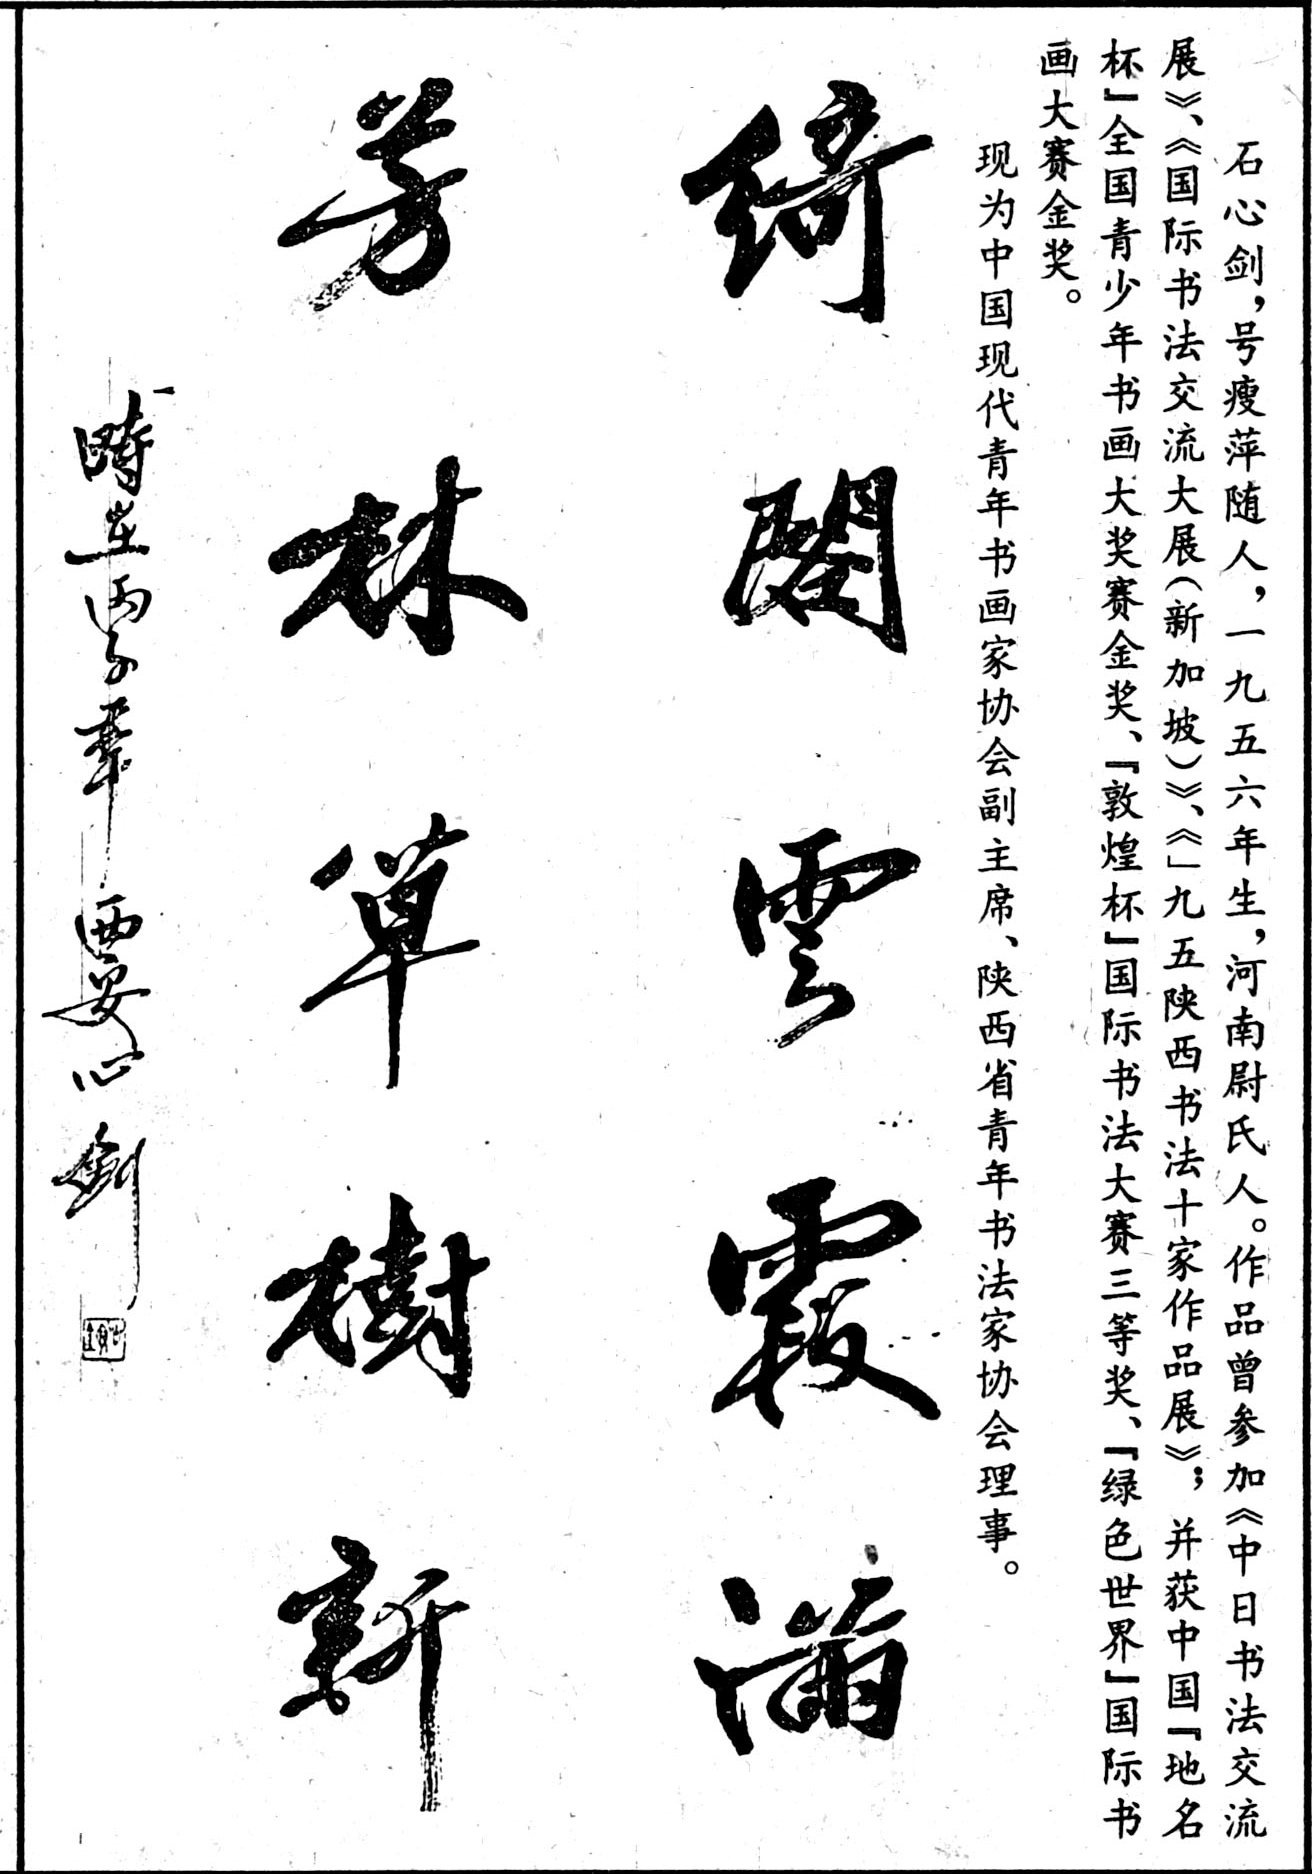 石心剑，号瘦萍随人，一九五六年生，河南尉氏人。作品曾参加《中日书法交流
展》、《国际书法交流大展（新加坡）》、《「九五陕西书法十家作品展》；并获中国『地名
杯』全国青少年书画大奖赛金奖、『敦煌杯』国际书法大赛三等奖、『绿色世界』国际书
画大赛金奖。
现为中国现代青年书画家协会副主席、陕西省青年书法家协会理事。
绮阁云霞满
芳林草樹新
時在丙子 西安心剑